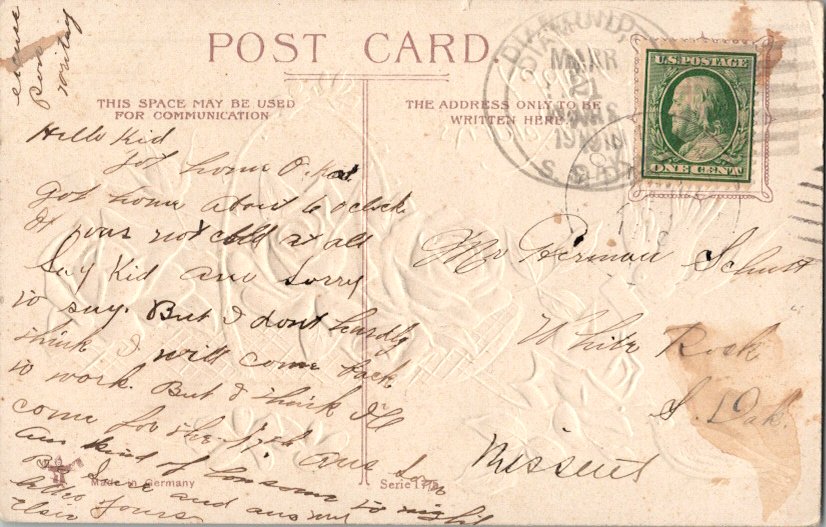 POST CARD.
THIS SPACE MAY BE USED
FOR COMMUNICATION
THE ADDRESS ONLY TO BE
WRITTEN HERE.
DIAMOND,
MAR
21
S. DAK
U.S. POSTAGE
ONE CENT
excuse
Poor
writing
Hello Kid
Got home O.K.
Got home about 6 oclock
It was not cold at all
Say Kid am sorry
to say. But I dont hardly
think I will come back
to work. But I think I'll
come for the 17th
am kind of lonsome to night
Be Sure and answer
Yours
Elsie
Mr Herman Schutt
White Rock
S. Dak.
Missent
Made in Germany
Serie